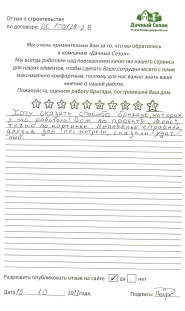 Отзыв о строительстве
по договору: ДС 170728-2В
Дачный Сезон
www.dse-projects.com
Мы очень признательны Вам за то, что вы обратились
в компанию «Дачный Сезон».
Мы всегда работаем над повышением качества нашего сервиса
для наших клиентов, чтобы сделать Ваше сотрудничество с нами
максимально комфортным, поэтому для нас важно знать ваше
мнение о нашей работе.
Пожалуйста, оцените работу бригады, построившей Ваш дом.
Хочу сказать спасибо бригаде, которая
у нас работала! Дом по проекту,
точно по картинке. Новоселье справили,
друзья дом посмотрели, сказали удач-
ный.
Разрешить опубликовать отзыв на сайте да нет
Дата 15 10 Подпись: